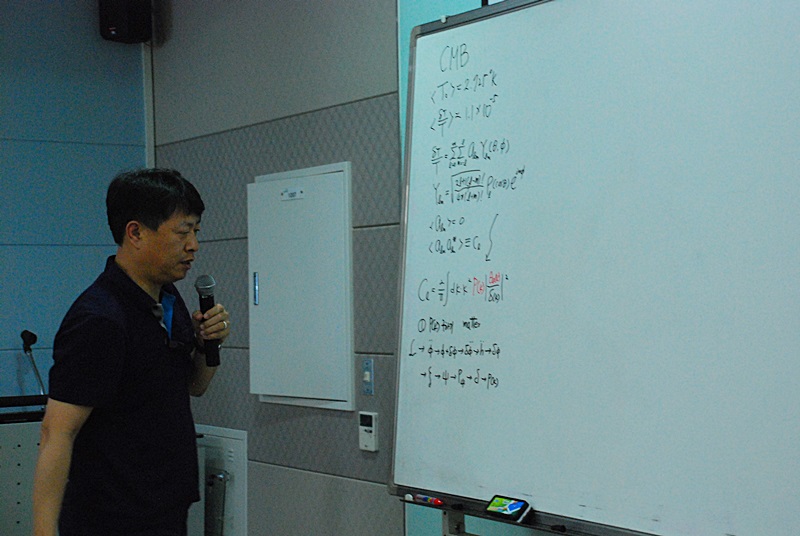 CMB
<T₀> = 2.725°K
<δT/T> = 1.1×10⁻⁵
δT/T = ΣΣ aₗₘ Yₗₘ(θ,φ)
Yₗₘ = √(2ℓ+1(ℓ-m)!/4π(ℓ+m)!) Pₗ(cosθ) e^imφ
<aₗₘ> = 0
<aₗₘ aₗₘ*> ≡ Cₗ
Cₗ = 2/π ∫ dk k² P(k) | /δ(k)|²
① P(k) from matter
L → φ̈ → φ+δφ → δφ̈ → ḧ → δφ
→ ξ → ψ → P_ψ → δ → P(k)